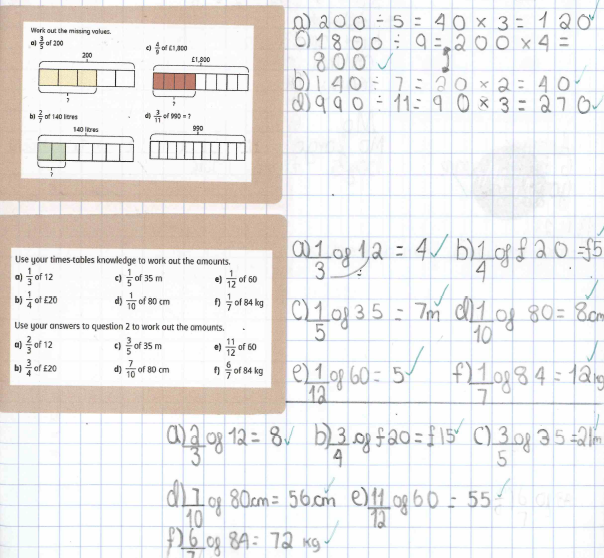 Work out the missing values.
a) 3/5 of 200
c) 4/9 of £1,800
200
£1,800
?
?
b) 2/7 of 140 litres
d) 3/11 of 990 = ?
140 litres
990
?
a) 200 ÷ 5 = 40 × 3 = 120
c) 1800 ÷ 9 = 200 × 4 =
800
b) 140 ÷ 7 = 20 × 2 = 40
d) 990 ÷ 11 = 90 × 3 = 270
Use your times-tables knowledge to work out the amounts.
a) 1/3 of 12 c) 1/5 of 35 m e) 1/12 of 60
b) 1/4 of £20 d) 1/10 of 80 cm f) 1/7 of 84 kg
Use your answers to question 2 to work out the amounts.
a) 2/3 of 12 c) 3/5 of 35 m e) 11/12 of 60
b) 3/4 of £20 d) 7/10 of 80 cm f) 6/7 of 84 kg
a) 1/3 of 12 = 4 b) 1/4 of £20 = £5
c) 1/5 of 35 = 7m d) 1/10 of 80 = 8cm
e) 1/12 of 60 = 5 f) 1/7 of 84 = 12kg
a) 2/3 of 12 = 8 b) 3/4 of £20 = £15 c) 3/5 of 35 = 21m
d) 7/10 of 80cm = 56cm e) 11/12 of 60 = 55
f) 6/7 of 84 = 72 kg